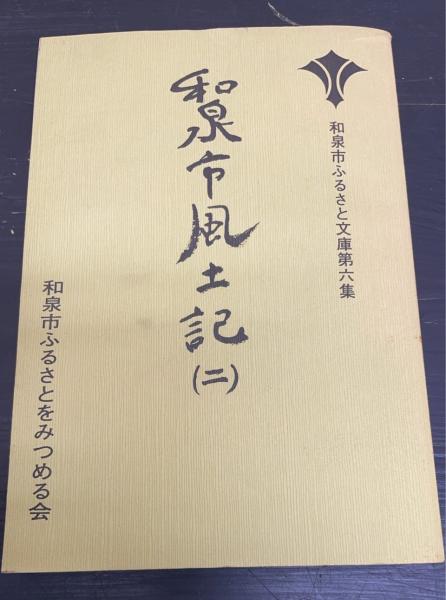 和泉市ふるさと文庫第六集
和泉市風土記
(二)
和泉市ふるさとをみつめる会